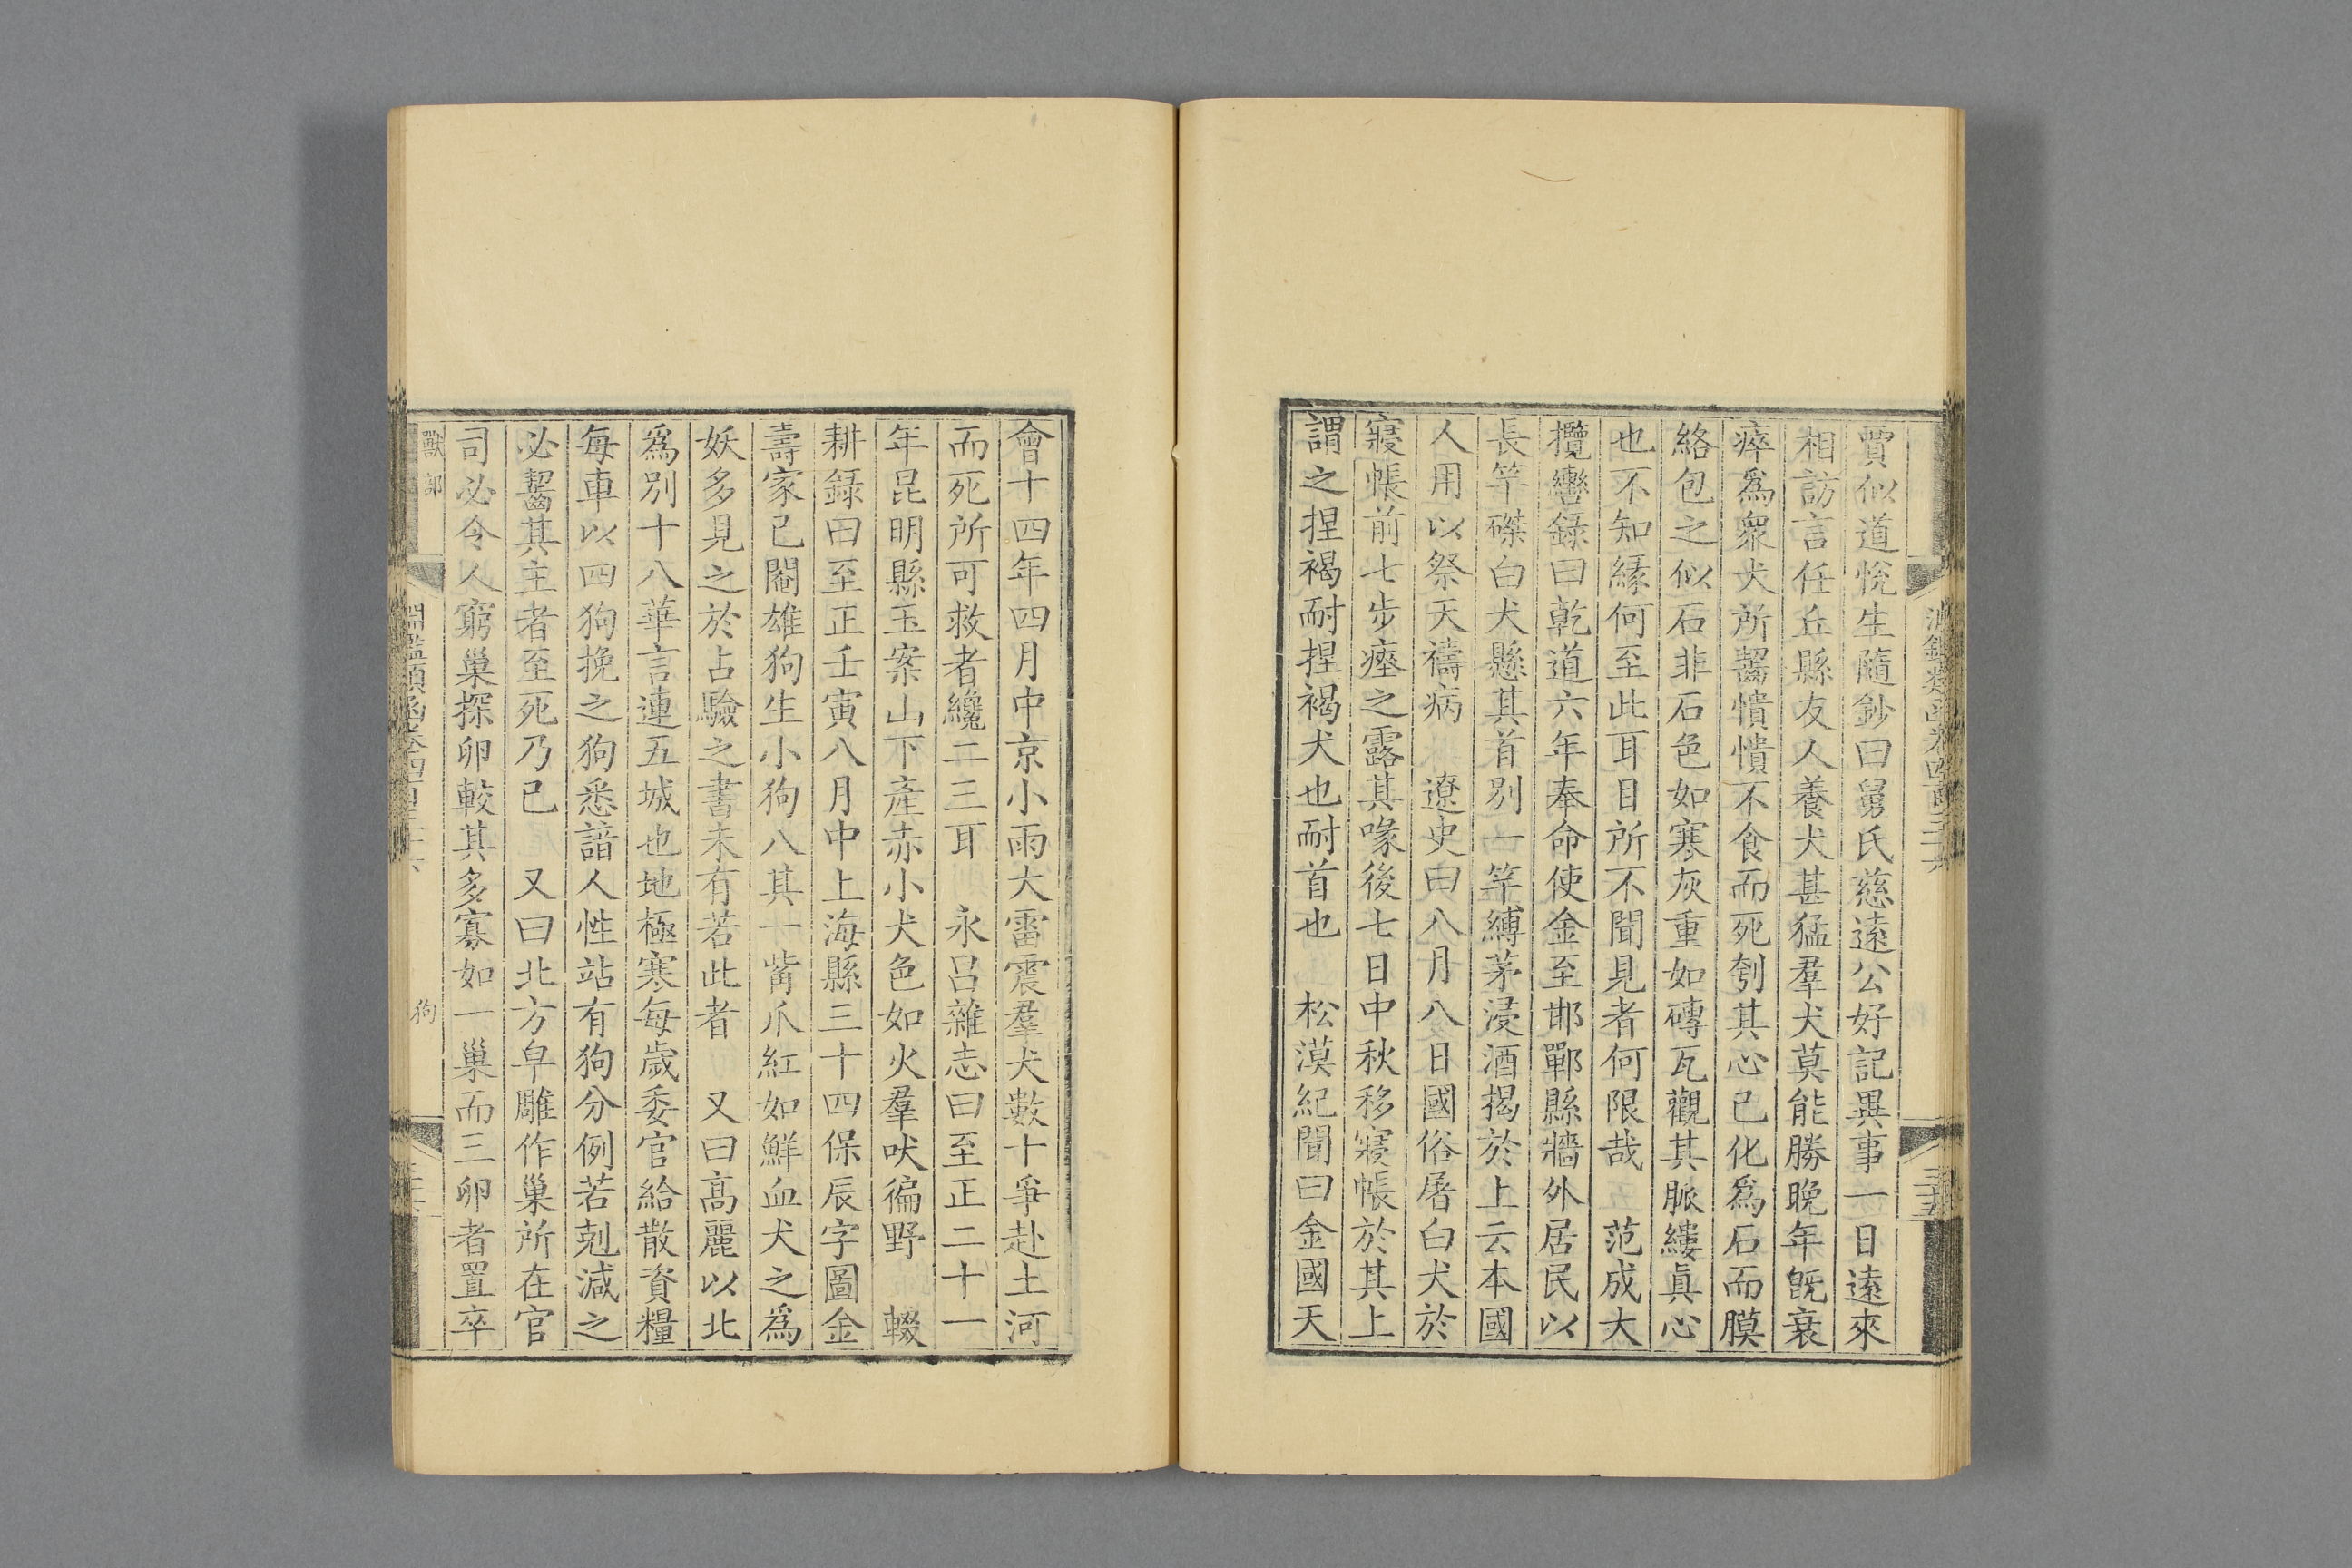 賈似道悅生隨鈔曰舅氏慈遠公好記異事一日遠來
相訪言任丘縣友人養犬甚猛羣犬莫能勝晚年旣衰
瘁爲衆犬所齧憒憒不食而死刳其心已化爲石而膜
絡包之似石非石色如寒灰重如磚瓦觀其脈縷眞心
也不知緣何至此耳目所不聞見者何限哉　范成大
攬轡錄曰乾道六年奉命使金至邯鄲縣牆外居民以
長竿磔白犬懸其首別一竿縛茅浸酒揭於上云本國
人用以祭天禱病　遼史曰八月八日國俗屠白犬於
寢帳前七步瘞之露其喙後七日中秋移寢帳於其上
謂之捏褐耐捏褐犬也耐首也　松漠紀聞曰金國天
會十四年四月中京小雨大雷震羣犬數十爭赴土河
而死所可救者纔二三耳　永呂雜志曰至正二十一
年昆明縣玉案山下產赤小犬色如火羣吠徧野　輟
耕錄曰至正壬寅八月中上海縣三十四保辰字圖金
壽家已閹雄狗生小狗八其一觜爪紅如鮮血犬之爲
妖多見之於占驗之書未有若此者　又曰高麗以北
爲別十八華言連五城也地極寒每歲委官給散資糧
每車以四狗挽之狗悉諳人性站有狗分例若剋減之
必齧其主者至死乃已　又曰北方皁雕作巢所在官
司必令人窮巢探卵較其多寡如一巢而三卵者置卒
獸部
淵鑑類函卷四百三十六
狗